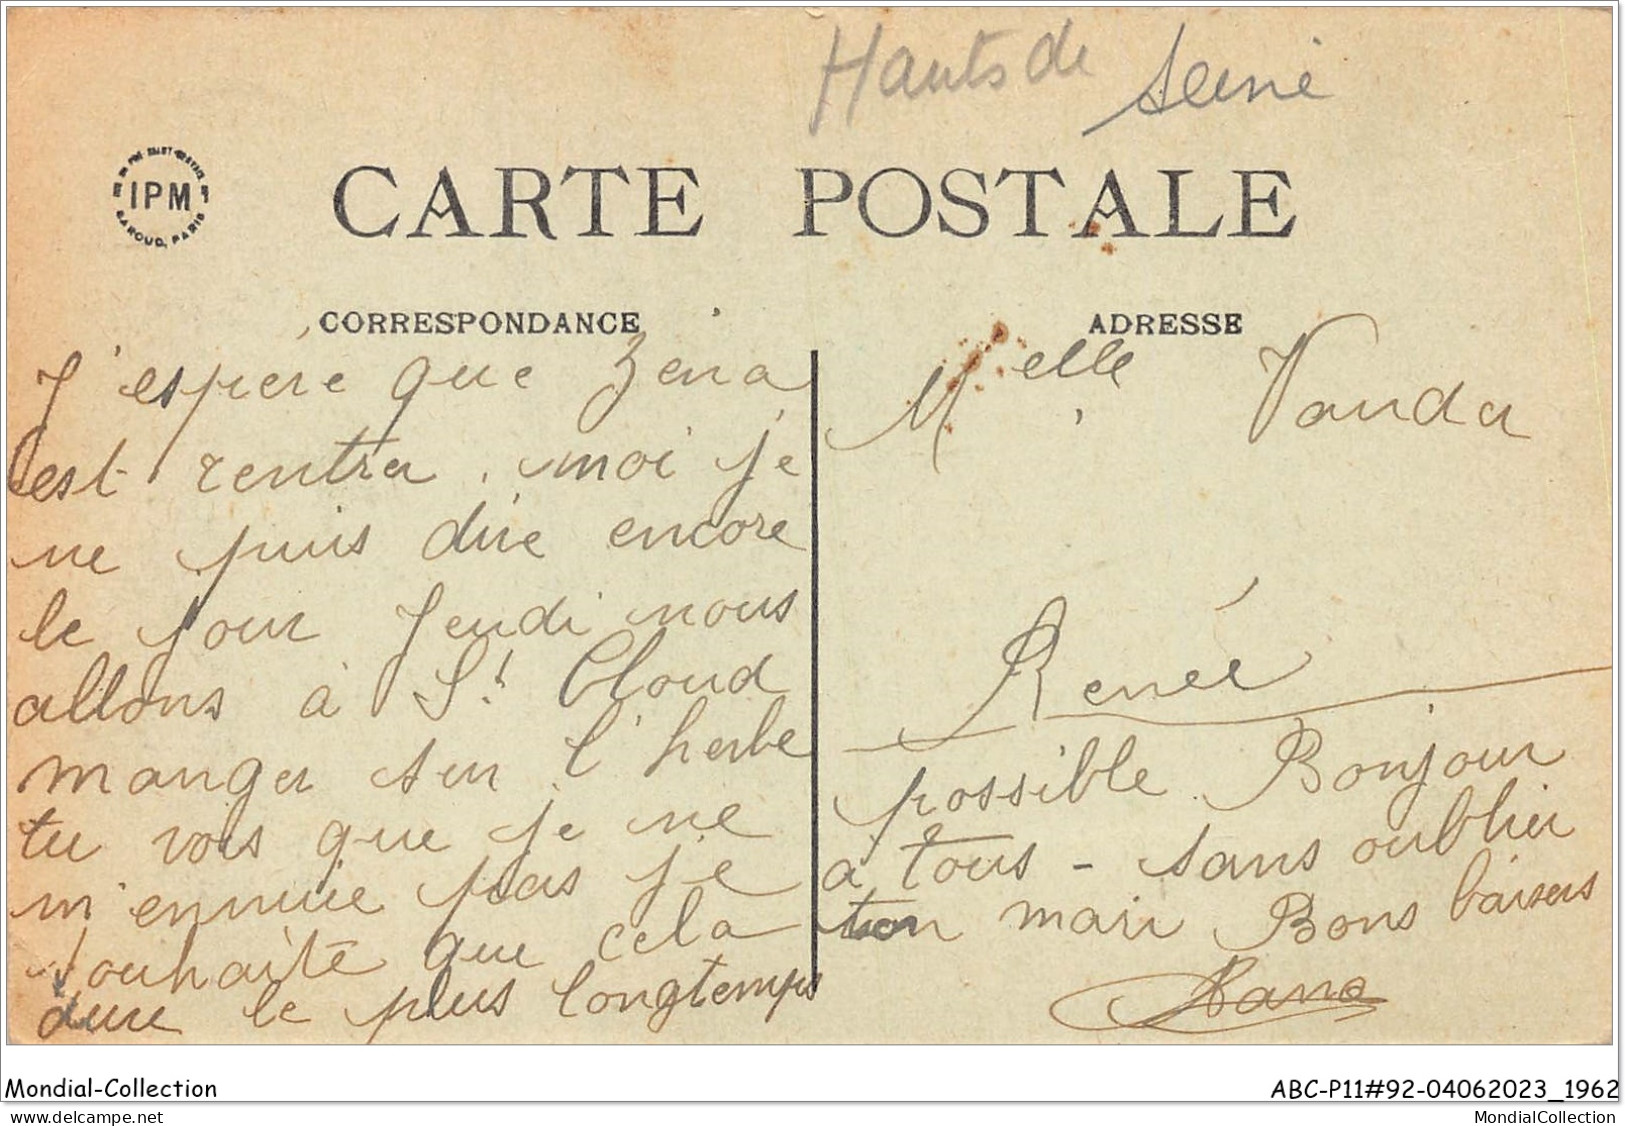 Hauts de Seine
IPM
CARTE POSTALE
CORRESPONDANCE
ADRESSE
J'espère que Zena
est rentra. moi je
ne puis dire encore
le jour Jeudi nous
allons à St Cloud
manger sur l'herbe
tu vois que je ne
m'ennuie pas je
souhaite que cela
dure le plus longtemps
Melle Vanda
Renée
possible. Bonjour
a tous - sans oublier
ton mari Bons baisers
Mondial-Collection
ABC-P11#92-04062023_1962
delcampe.net
MondialCollection